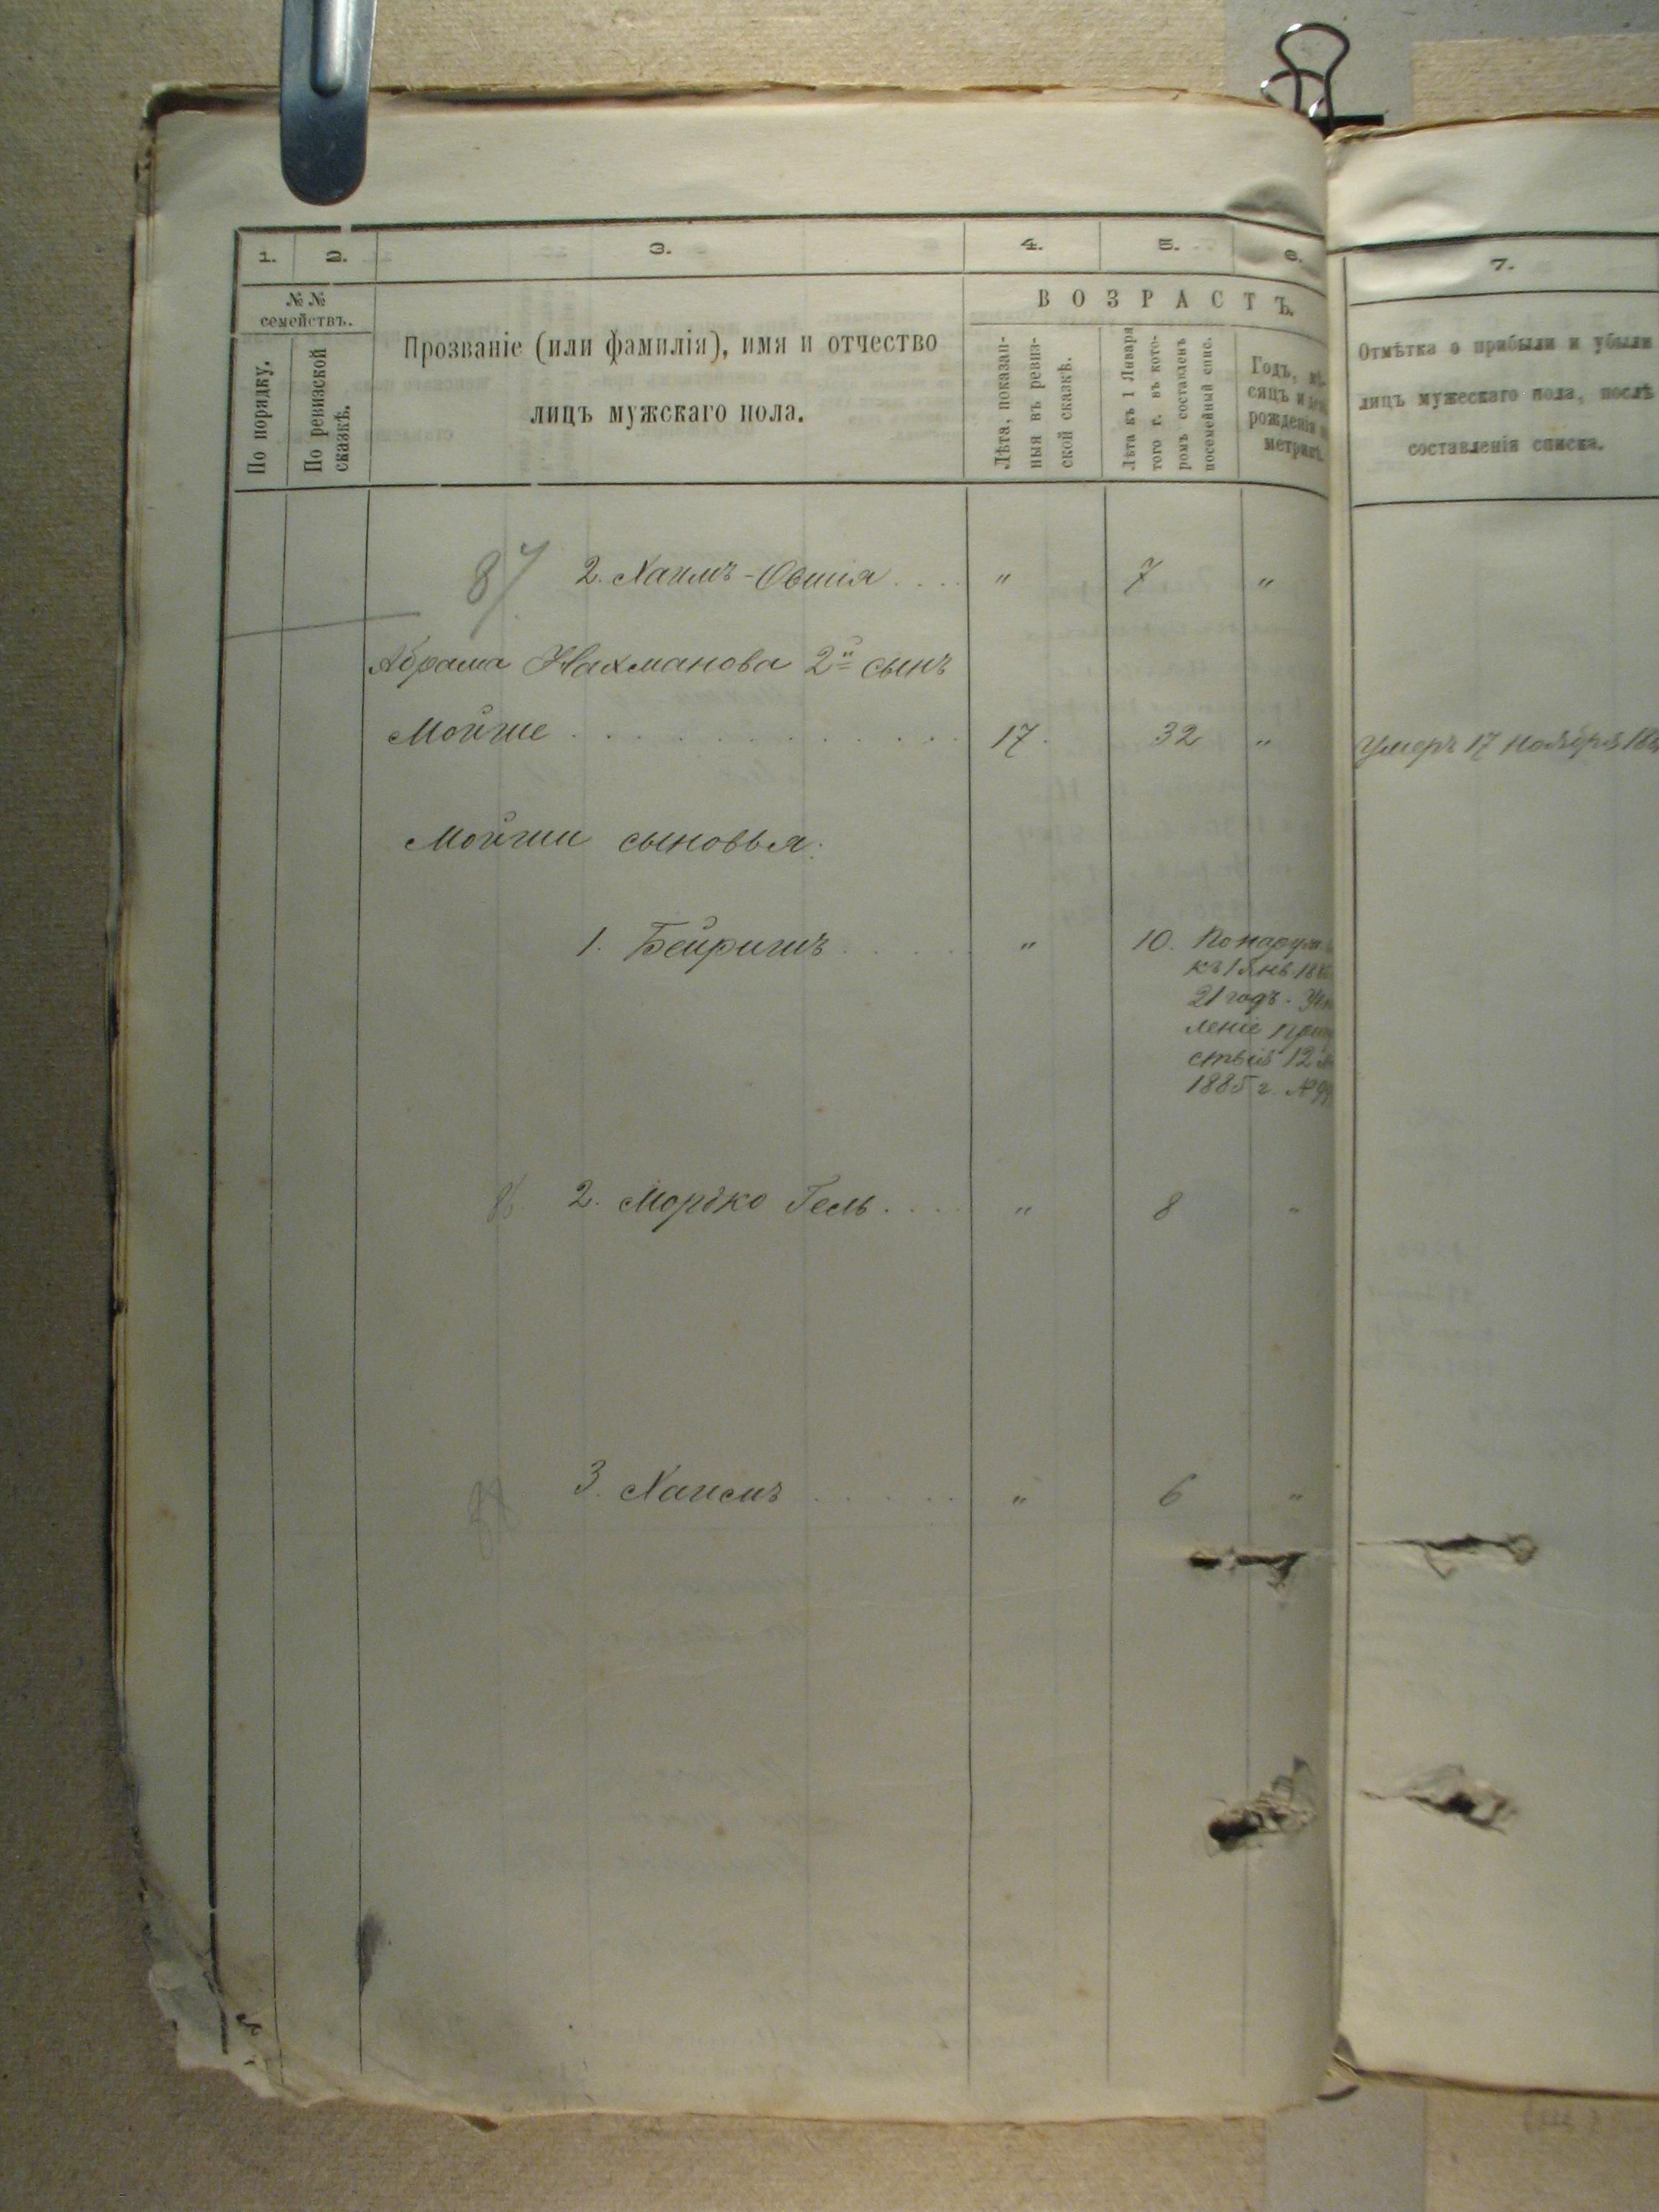 1. 2. 3. 4. 5. 6. 7.
№ № семействъ.
По порядку.
По ревизской сказкѣ.
Прозваніе (или фамилія), имя и отчество
лицъ мужскаго пола.
ВОЗРАСТЪ.
Лѣта, показан-
ныя въ ревиз-
ской сказкѣ.
Лѣта къ 1 Января
того г. въ кото-
ромъ составленъ
посемейный спис.
Годъ, мѣ-
сяцъ и
рожденія
метрик
Отмѣтка о прибыли и убыли
лицъ мужескаго пола, послѣ
составленія списка.
2. Хаимъ-Овшія .... " 7 "
Абрама Нахманова 2й сынъ
Мойше 17. 32 " Умеръ 17 Ноября
Мойши сыновья:
1. Бейришъ " 10.
къ 1 Янв.
21 годъ.
леніе
12
1885 г. №
2. Мордко Гель .... " 8 "
3. Хаимъ " 6 "